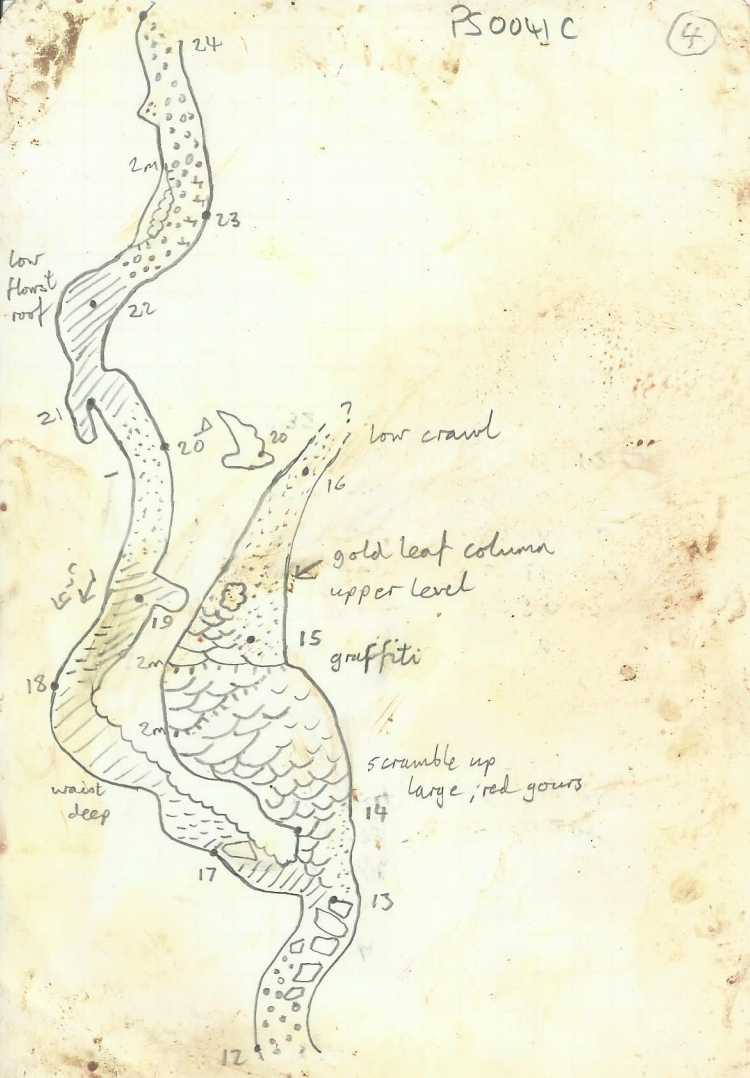 PS0041C
4
24
2m
23
low
flowst
roof
22
21
20
20
?
low crawl
16
gold leaf column
upper level
19
15
graffiti
2m
18
2m
scramble up
large, red gours
waist
deep
14
17
13
12